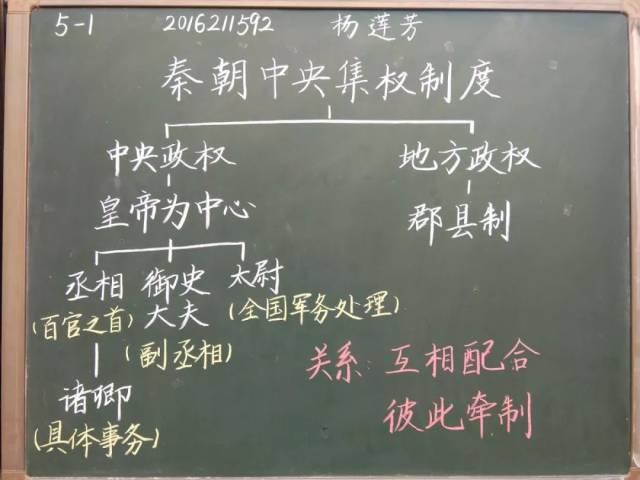 5-1 2016211592 杨莲芳
秦朝中央集权制度
中央政权 地方政权
皇帝为中心 郡县制
丞相 御史 太尉
(百官之首) 大夫 (全国军务处理)
(副丞相)
关系: 互相配合
诸卿
彼此牵制
(具体事务)